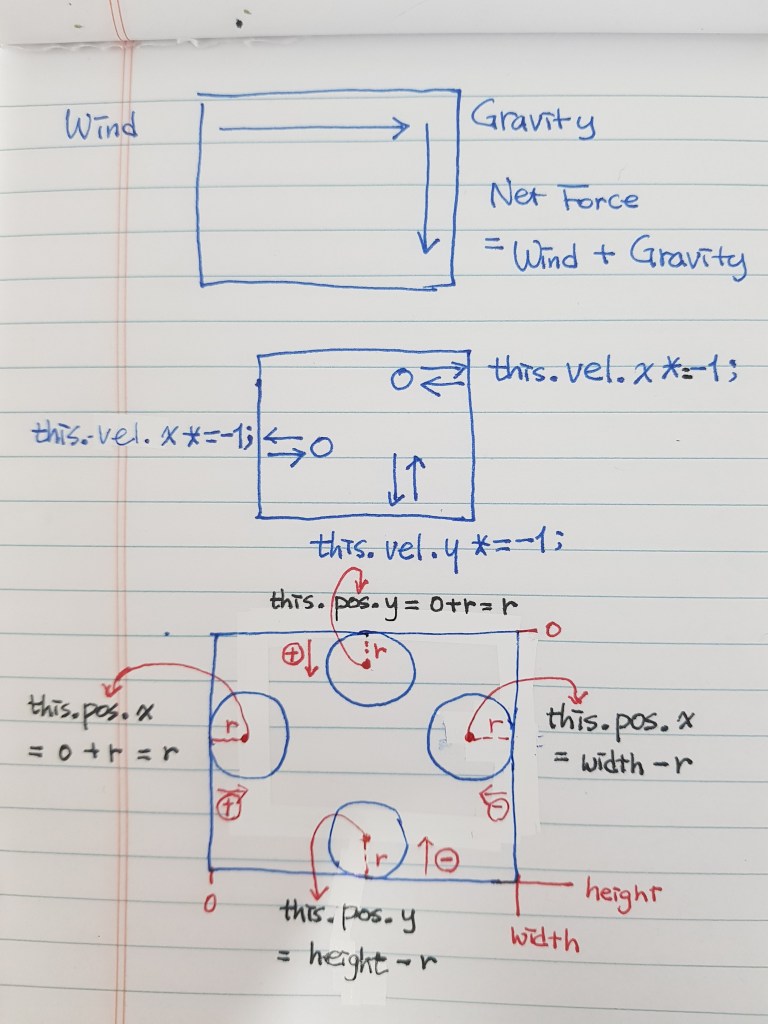 Wind
Gravity
Net Force
= Wind + Gravity
this.vel.x *=-1;
this.vel.x *=-1;
this.vel.y *=-1;
this.pos.y = 0+r = r
0
⊕
r
this.pos.x
= 0 + r = r
r
r
this.pos.x
= width - r
⊕
⊖
r
⊖
0
height
width
this.pos.y
= height - r